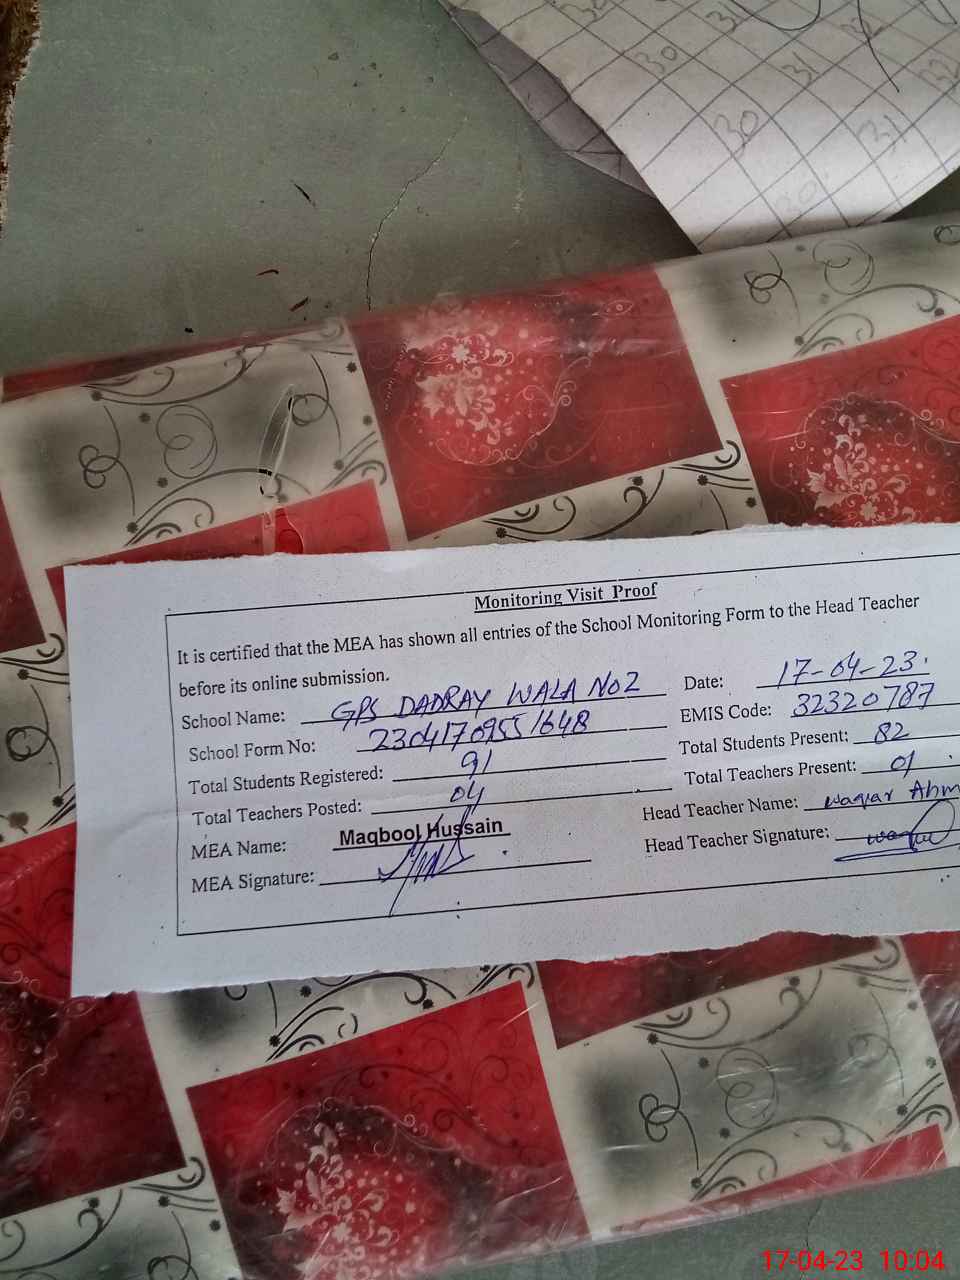 32
31
30
31
32
30
31
30
Monitoring Visit Proof
It is certified that the MEA has shown all entries of the School Monitoring Form to the Head Teacher
before its online submission.
School Name: GPS DADRAY WALA No2 Date: 17-04-23.
School Form No: 23041709551648 EMIS Code: 32320787
Total Students Registered: 91 Total Students Present: 82
Total Teachers Posted: 04 Total Teachers Present: 01
MEA Name: Maqbool Hussain Head Teacher Name: waqar Ahm
MEA Signature: Head Teacher Signature:
17-04-23 10:04